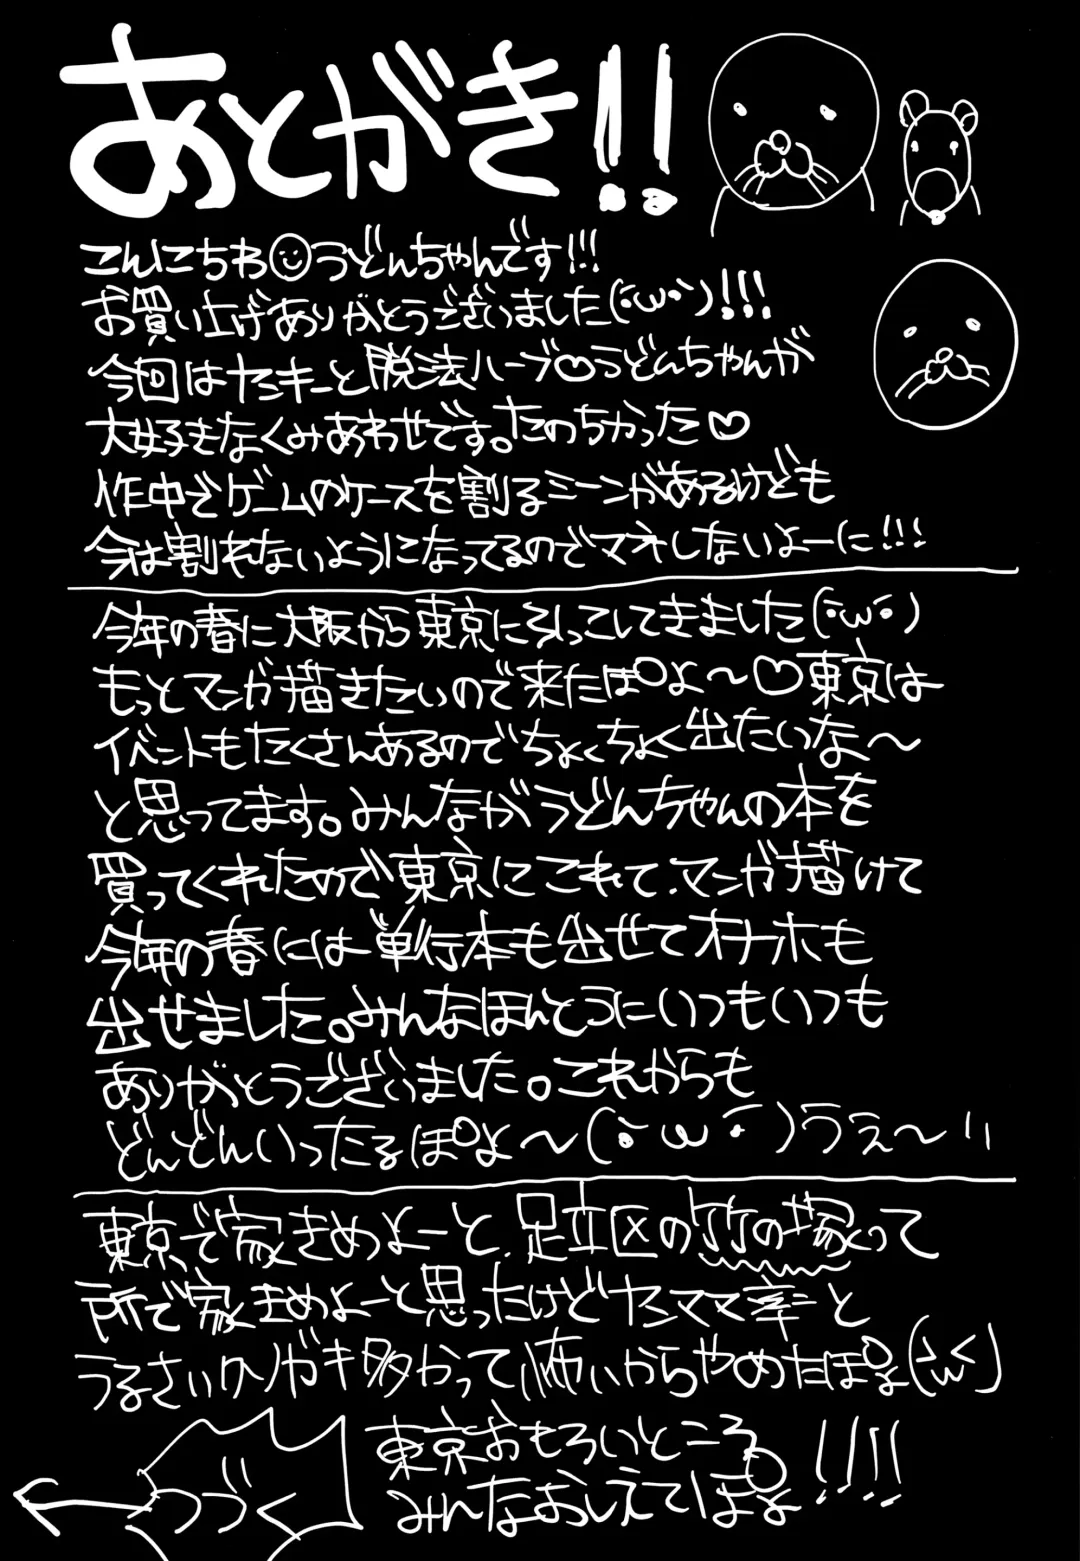 あとがき!!
こんにちわ☺うどんちゃんです!!!
お買い上げありがとうございました(・ω・)!!!
今回はヤンキーと脱法ハーブ♡うどんちゃんが
大好きなくみあわせです。たのちかった♡
作中でゲームのケースを割るシーンがあるけども
今は割れないようになってるのでマネしないよーに!!!
今年の春に大阪から東京に引っこしてきました(・ω・)
もっとマンガ描きたいので来たぽよ〜♡東京は
イベントもたくさんあるのでちょくちょく出たいな〜
と思ってます。みんながうどんちゃんの本を
買ってくれたので東京にこれて、マンガ描けて
今年の春には単行本も出せてオナホも
出せました。みんなほんとうにいつもいつも
ありがとうございました。これからも
どんどんいったるぽよ〜(・ω・)うぇ〜い
東京で家きめよーと、足立区の竹の塚って
所で家きめよーと思ったけどヤンママ率と
うるさいクソガキ多かって怖いからやめたぽよ(・ω<)
東京おもろいところ
みんなおしえてぽよ!!!!
つづく